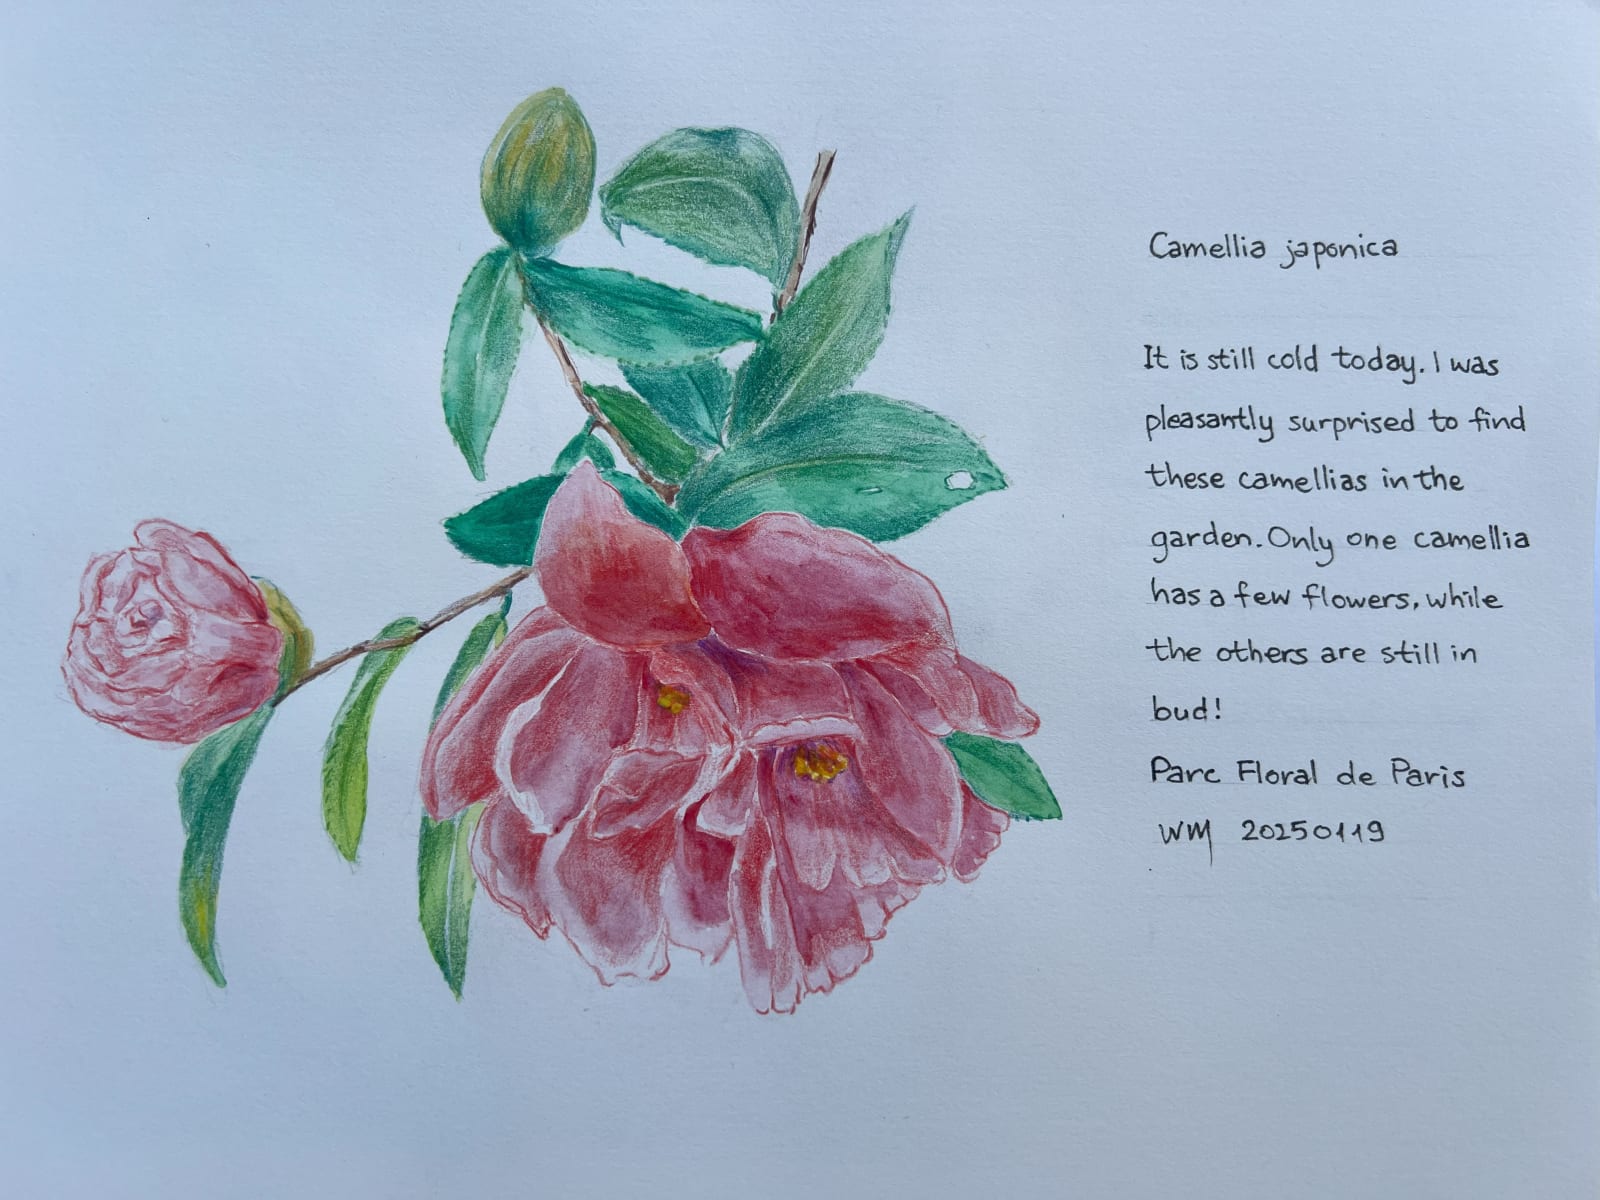 Camellia japonica
It is still cold today. I was
pleasantly surprised to find
these camellias in the
garden. Only one camellia
has a few flowers, while
the others are still in
bud!
Parc Floral de Paris
WM 20250119